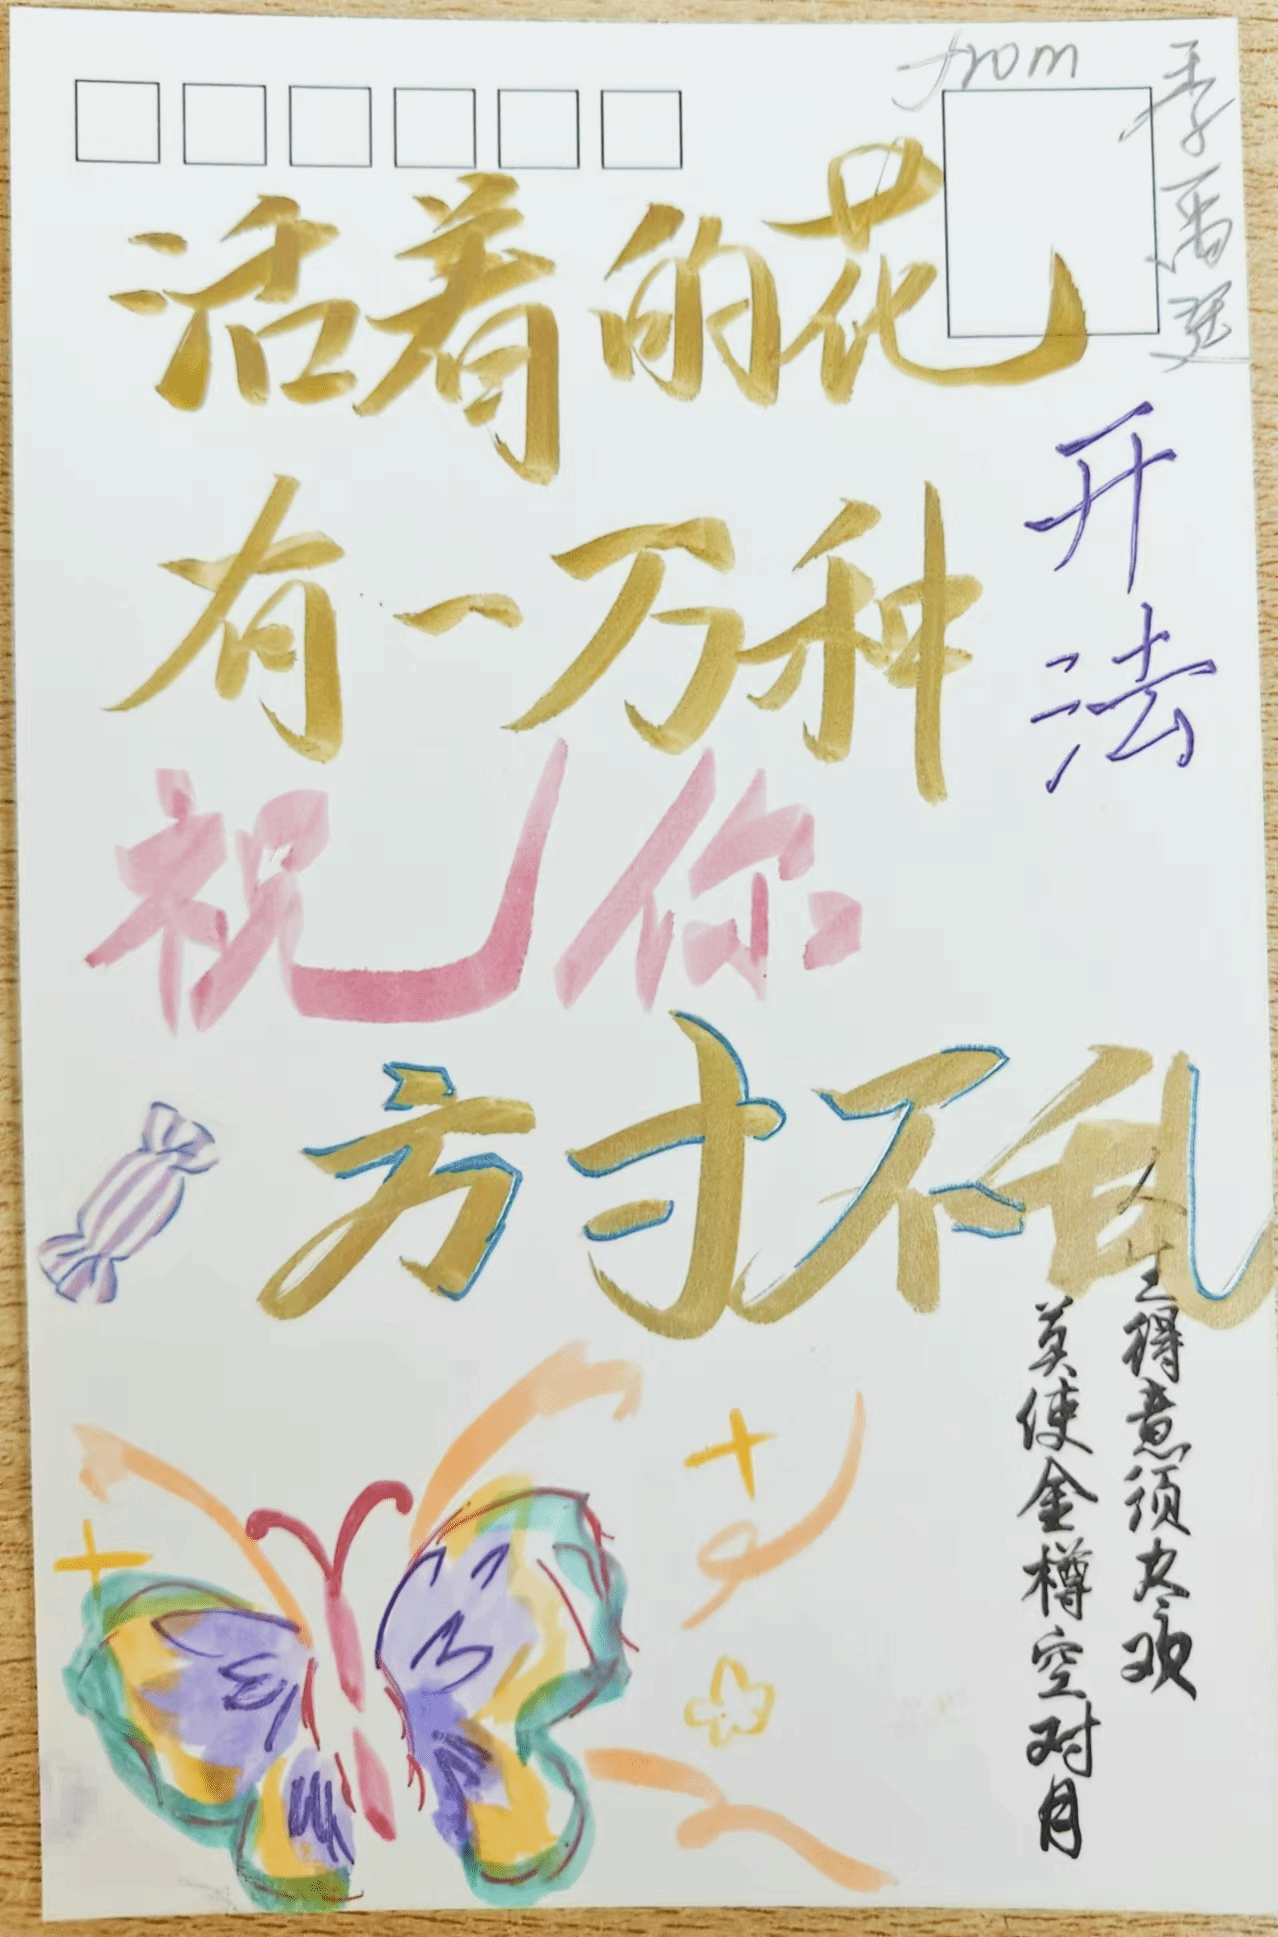 from
李禹廷
活着的花
有一万种
开法
祝你
方寸不乱
人生得意须尽欢
莫使金樽空对月